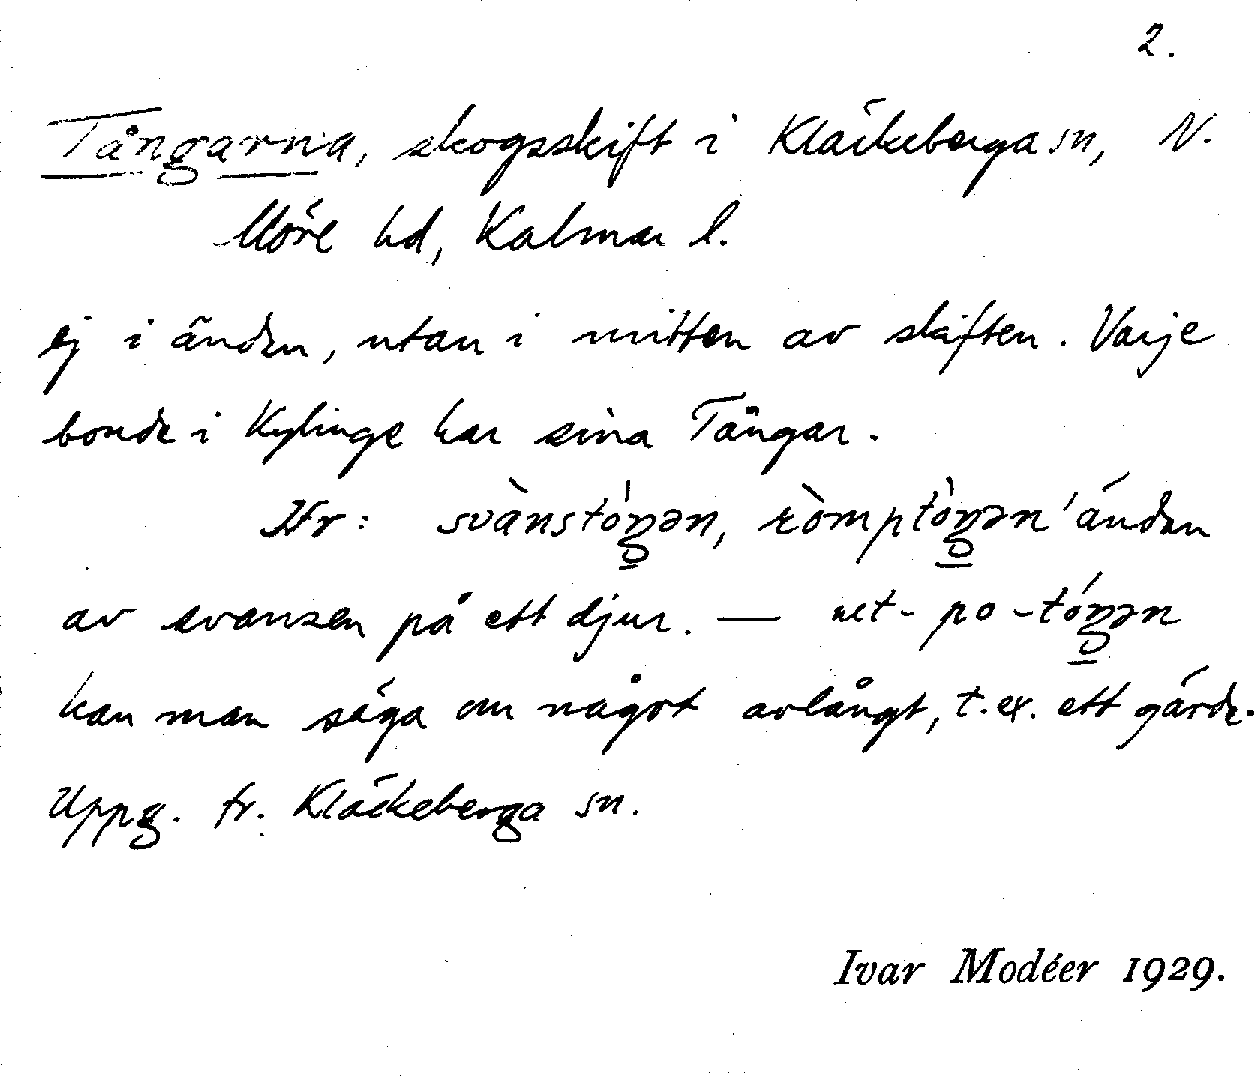 2.
Tångarna, skogsskift i Kläckeberga sn, N.
Möre hd, Kalmar l.
ej i änden, utan i mitten av skiften. Varje
bonde i Kylinge har sina Tångar.
Jfr: svànstóŋən, ròmptòŋən 'änden
av svansen på ett djur. — ut-po-tóŋən
kan man säga om något avlångt, t.ex. ett gärde.
Uppg. fr. Kläckeberga sn.
Ivar Modéer 1929.